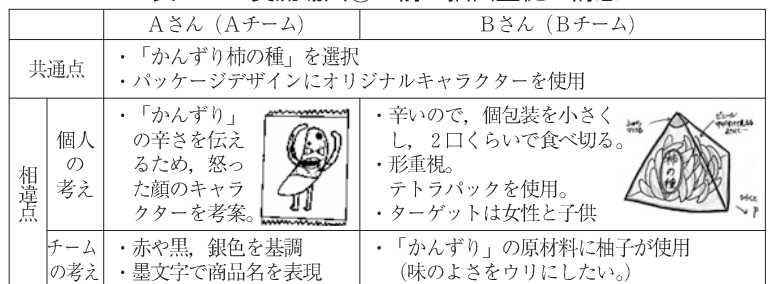 Aさん（Aチーム）
Bさん（Bチーム）
共通点
・「かんずり柿の種」を選択
・パッケージデザインにオリジナルキャラクターを使用
相違点
個人
の
考え
・「かんずり」
の辛さを伝え
るため，怒っ
た顔のキャラ
クターを考案。
・辛いので，個包装を小さく
し，２口くらいで食べ切る。
・形重視。
テトラパックを使用。
・ターゲットは女性と子供
柿の種
チーム
の考え
・赤や黒，銀色を基調
・墨文字で商品名を表現
・「かんずり」の原材料に柚子が使用
（味のよさをウリにしたい。）